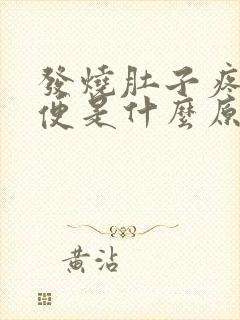 發燒肚子疼
便是什麼原
黃沾